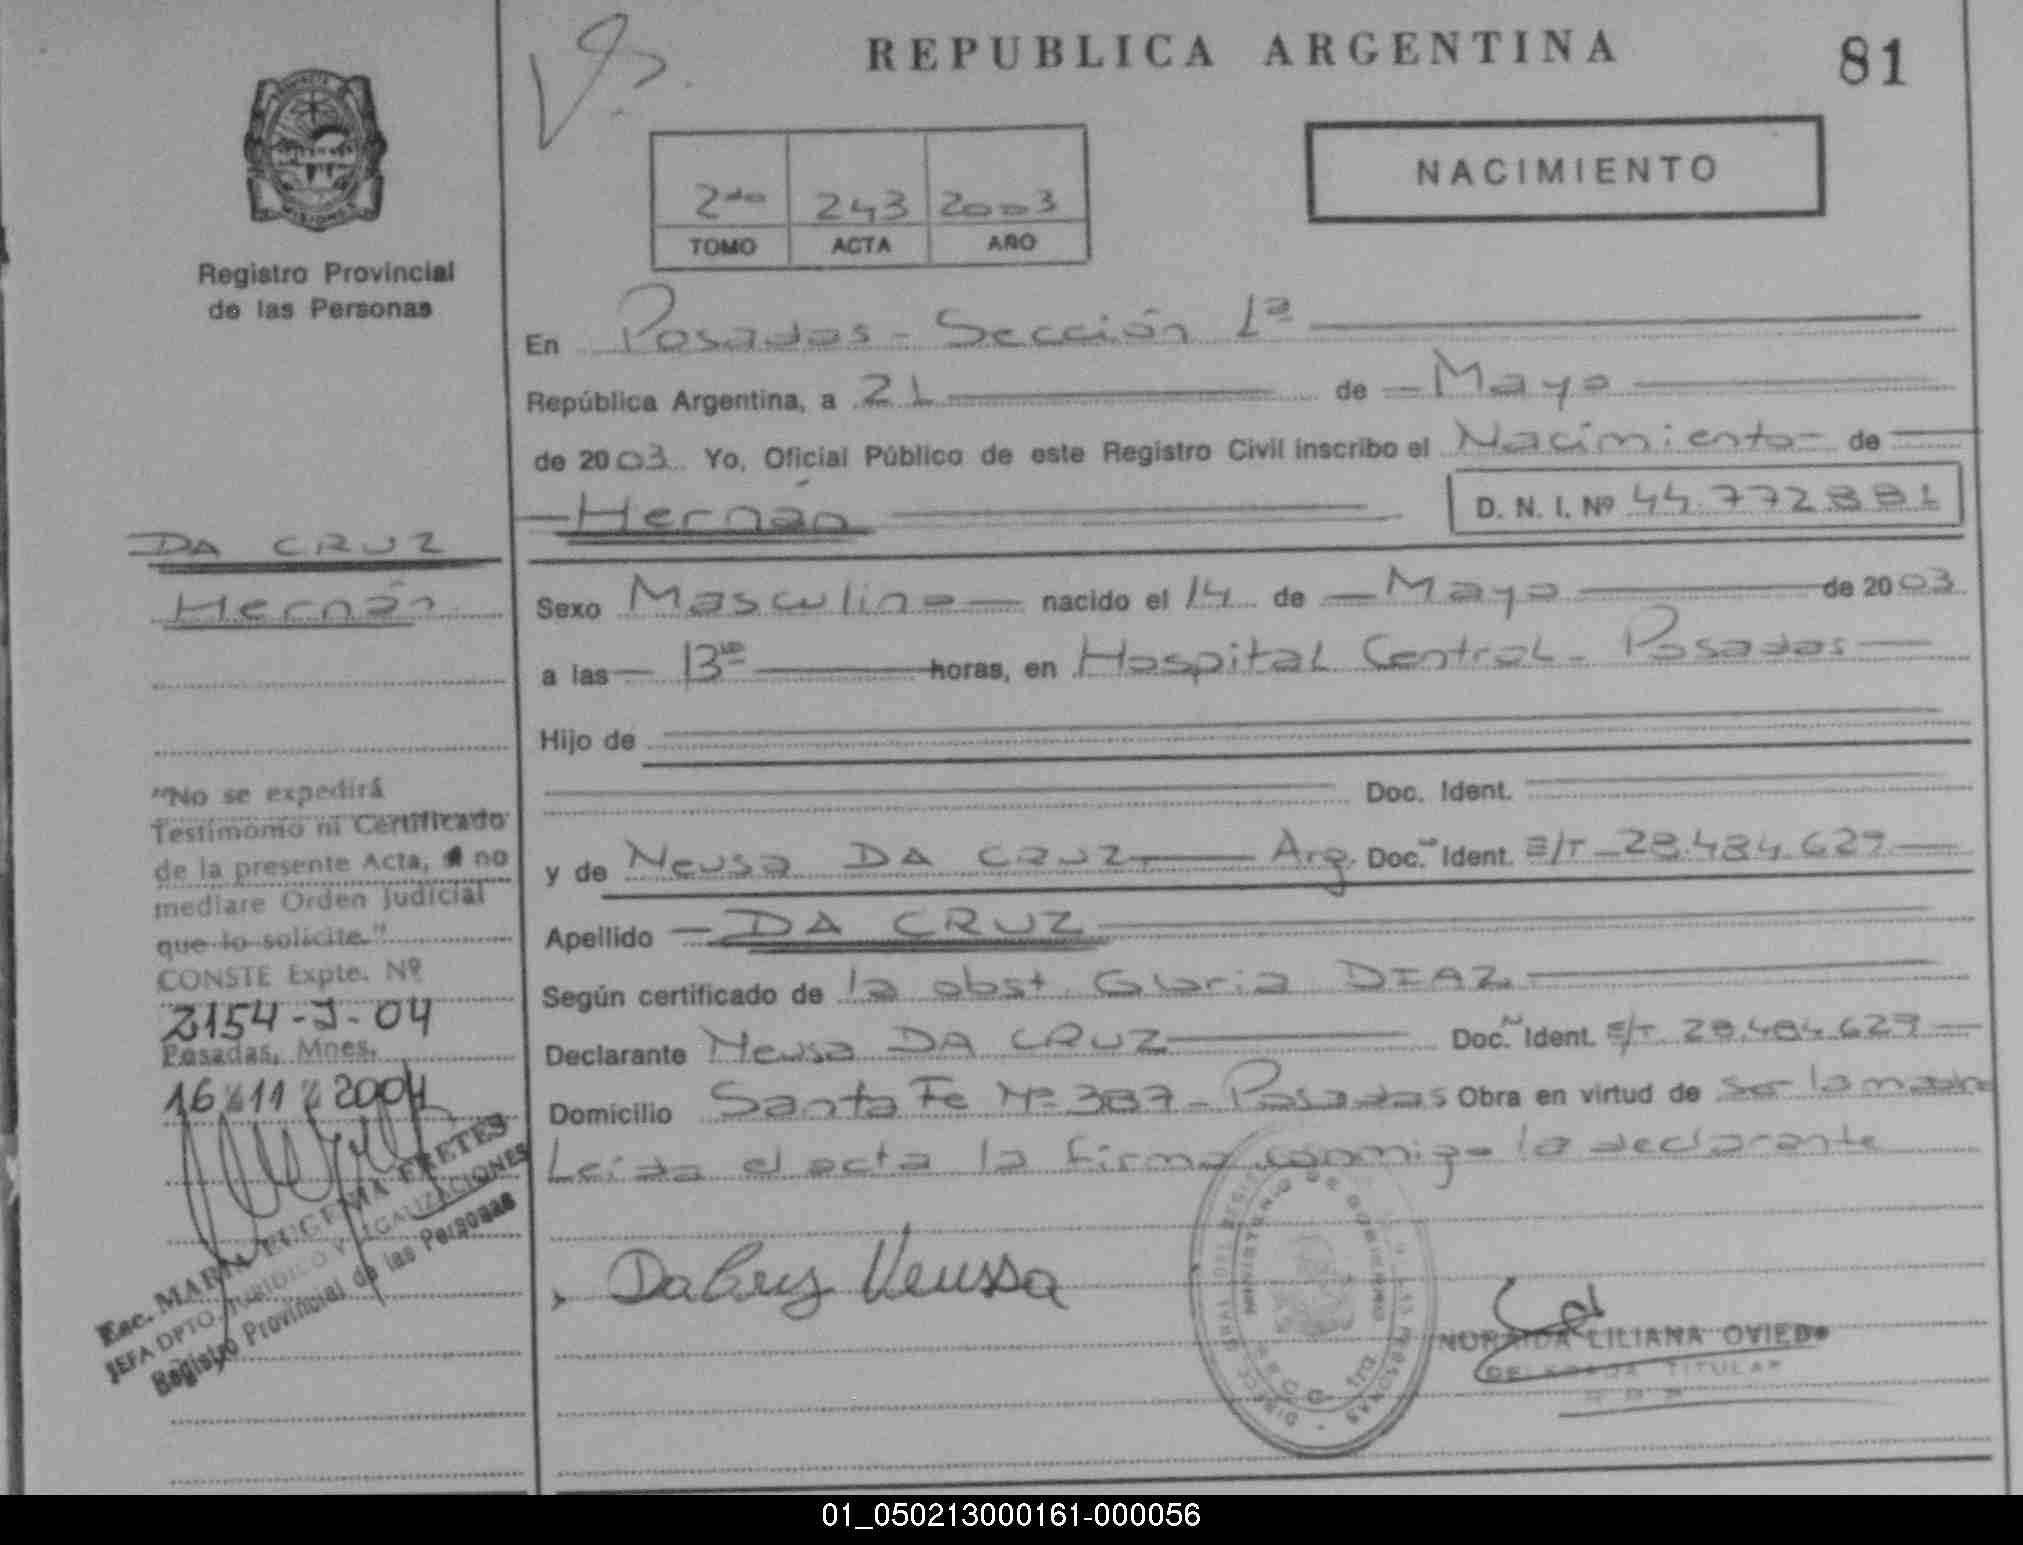 REPUBLICA ARGENTINA
81
NACIMIENTO
2do 243 2003
TOMO ACTA AÑO
Registro Provincial
de las Personas
En Posadas - Sección 1ª
República Argentina, a 21 de Mayo
de 2003 Yo, Oficial Público de este Registro Civil inscribo el Nacimiento de
Hernán
D. N. I. Nº 44.772.881
Sexo Masculino nacido el 14 de Mayo de 2003
a las 13 horas, en Hospital Central - Posadas
Hijo de
Doc. Ident.
y de Neusa DA CRUZ Arg. Doc. Ident. E/T 28.484.629
Apellido DA CRUZ
Según certificado de la obst. Gloria DIAZ
Declarante Neusa DA CRUZ Doc. Ident. E/T. 28.484.629
Domicilio Santa Fe Nº 387 - Posadas Obra en virtud de ser la madre
Leída el acta la firma conmigo la declarante
DaCruz Neussa
NORAIDA LILIANA OVIEDO
DELEGADA TITULAR
MINISTERIO DE GOBIERNO
DA CRUZ
Hernán
"No se expedirá
Testimonio ni Certificado
de la presente Acta, no
mediare Orden Judicial
que lo solicite."
CONSTE Expte. Nº
2154-J-04
Posadas, Mnes.
16 11 2004
Esc. MARIA EUGENIA FRETES
JEFA DPTO. JURIDICO Y LEGALIZACIONES
Registro Provincial de las Personas
01_050213000161-000056